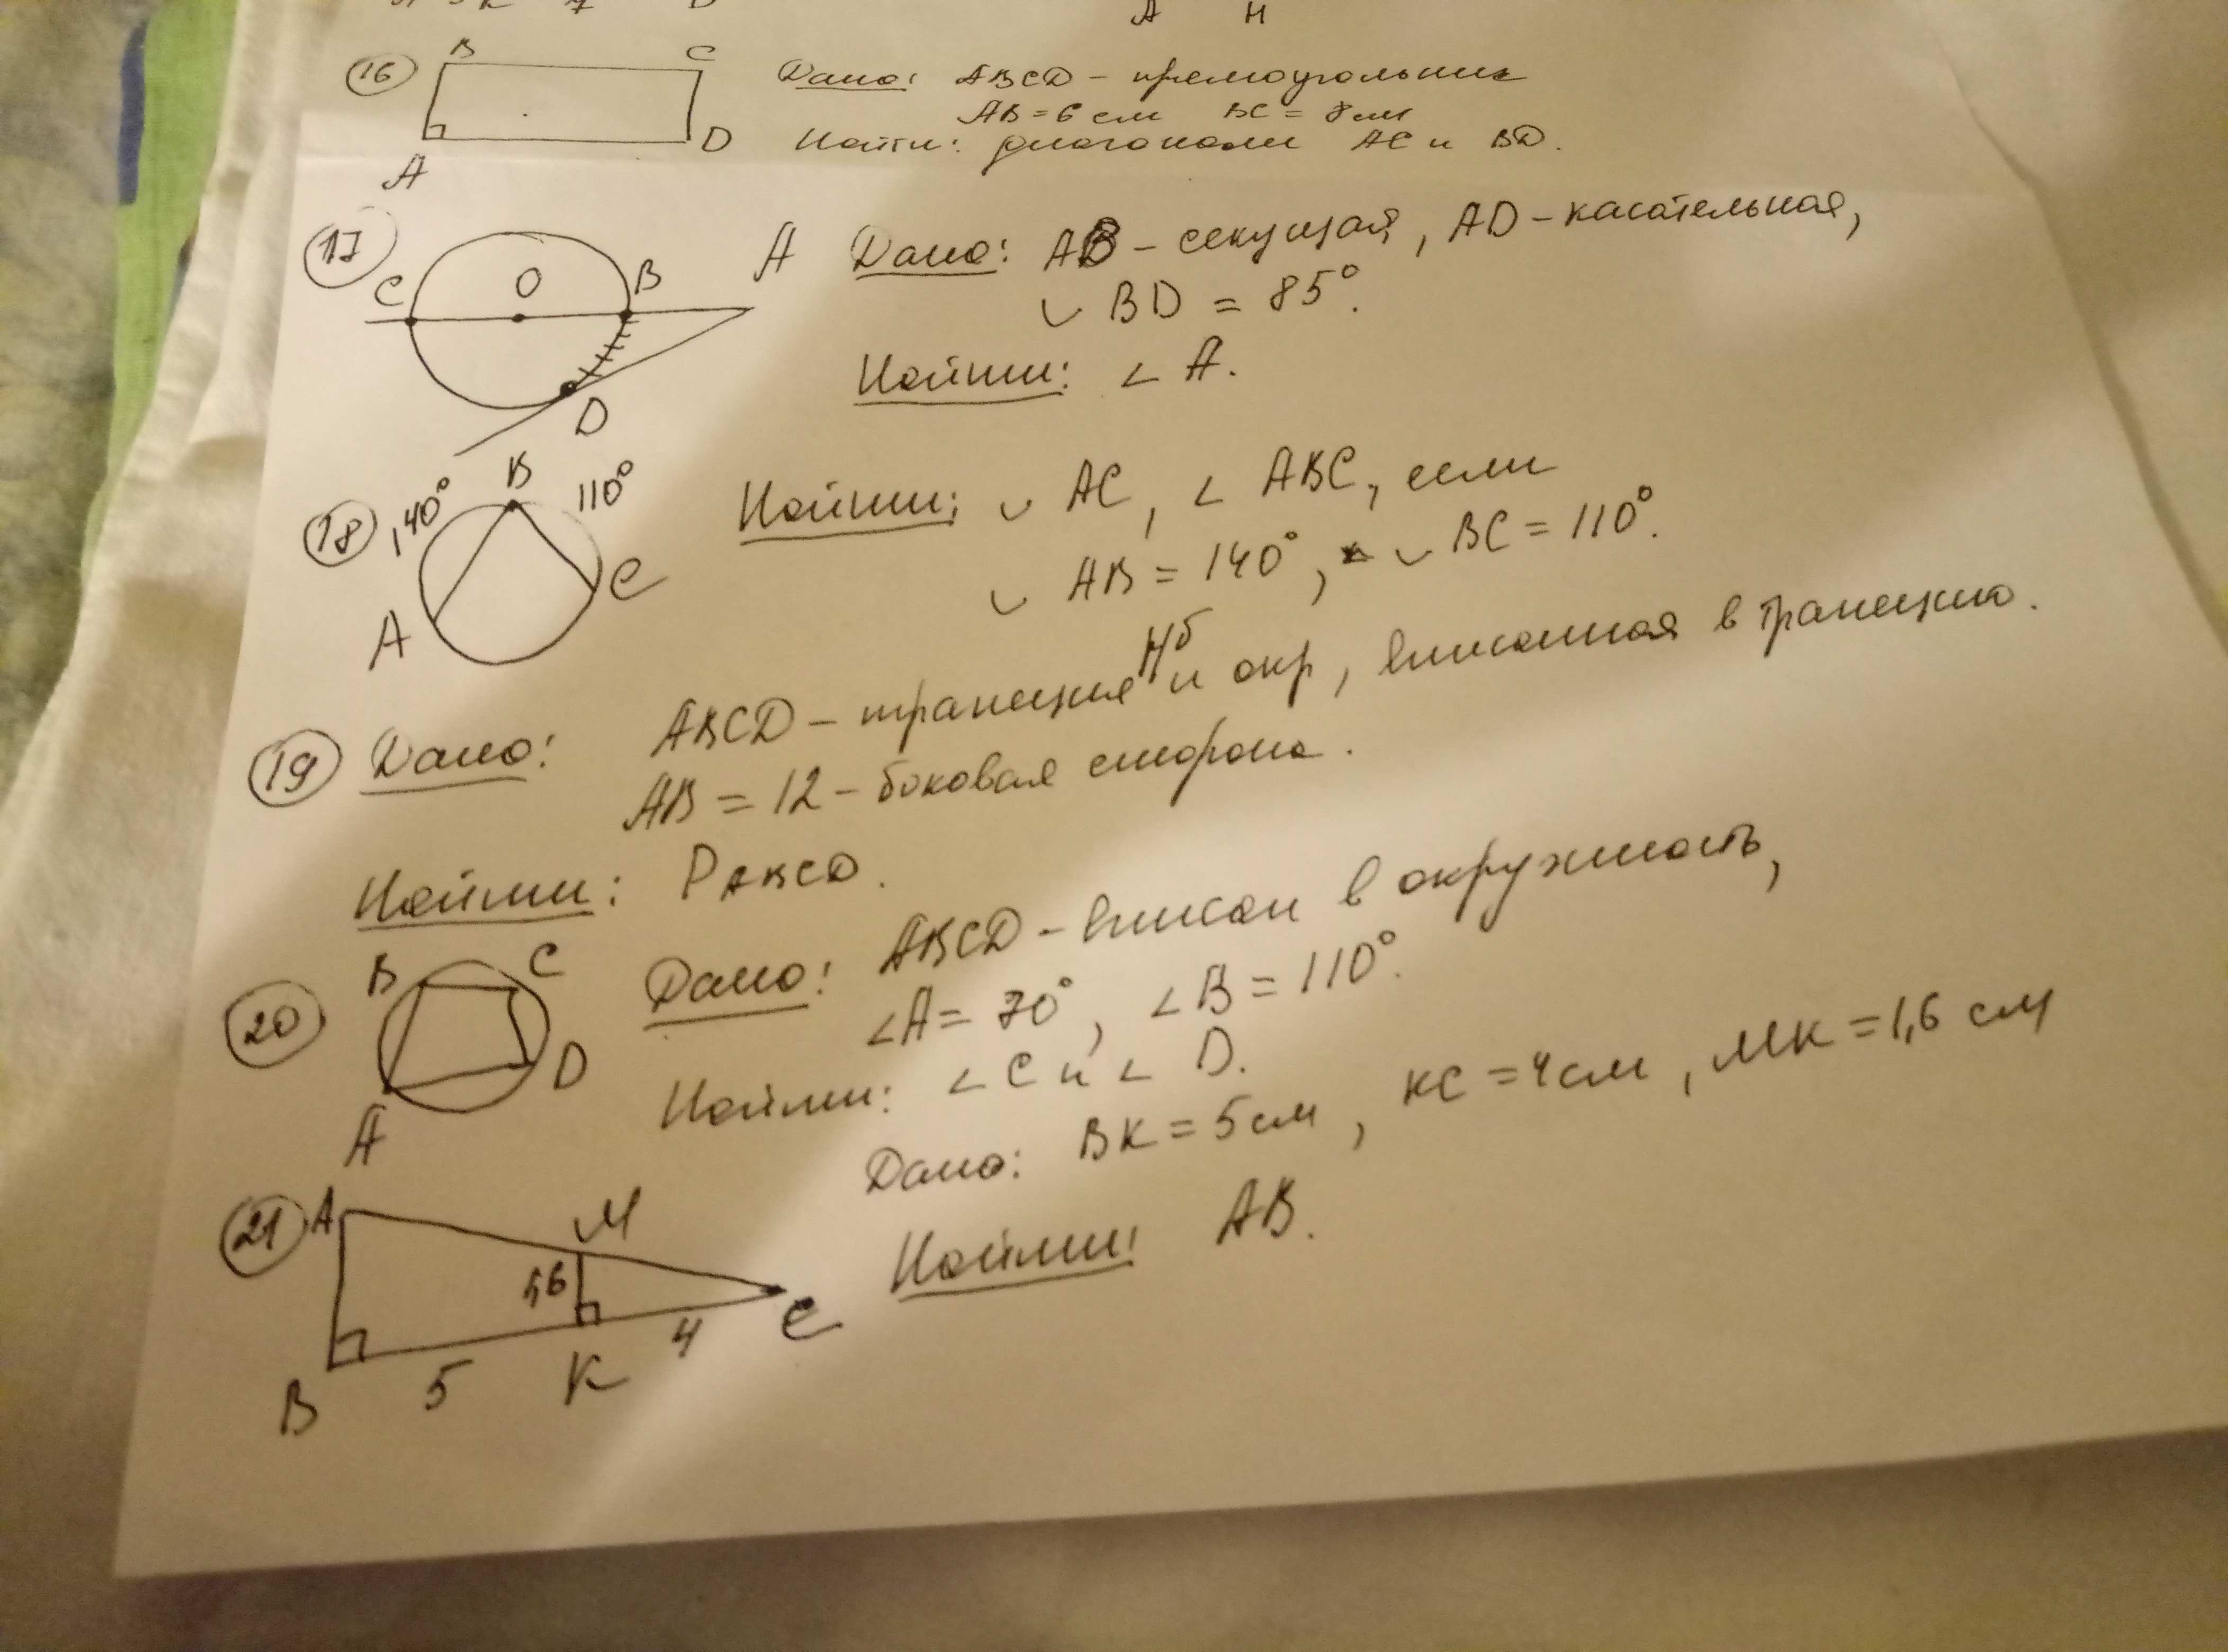 А Н
16 B C Дано: ABCD - прямоугольник
AB = 6 см BC = 8 см
A D Найти: диагонали AC и BD.
17 C O B A D
Дано: AB - секущая, AD - касательная,
◡ BD = 85°.
Найти: ∠ A.
18 140° B 110° A C
Найти: ◡ AC, ∠ ABC, если
◡ AB = 140°, ◡ BC = 110°.
19 Дано: ABCD - трапеция р/б и окр, вписанная в трапецию.
AB = 12 - боковая сторона.
Найти: P ABCD.
20 B C A D
Дано: ABCD - вписан в окружность,
∠A = 70°, ∠B = 110°.
Найти: ∠ C и ∠ D.
21 A M 1,6 C B 5 K 4
Дано: BK = 5 см, KC = 4 см, MK = 1,6 см
Найти: AB.